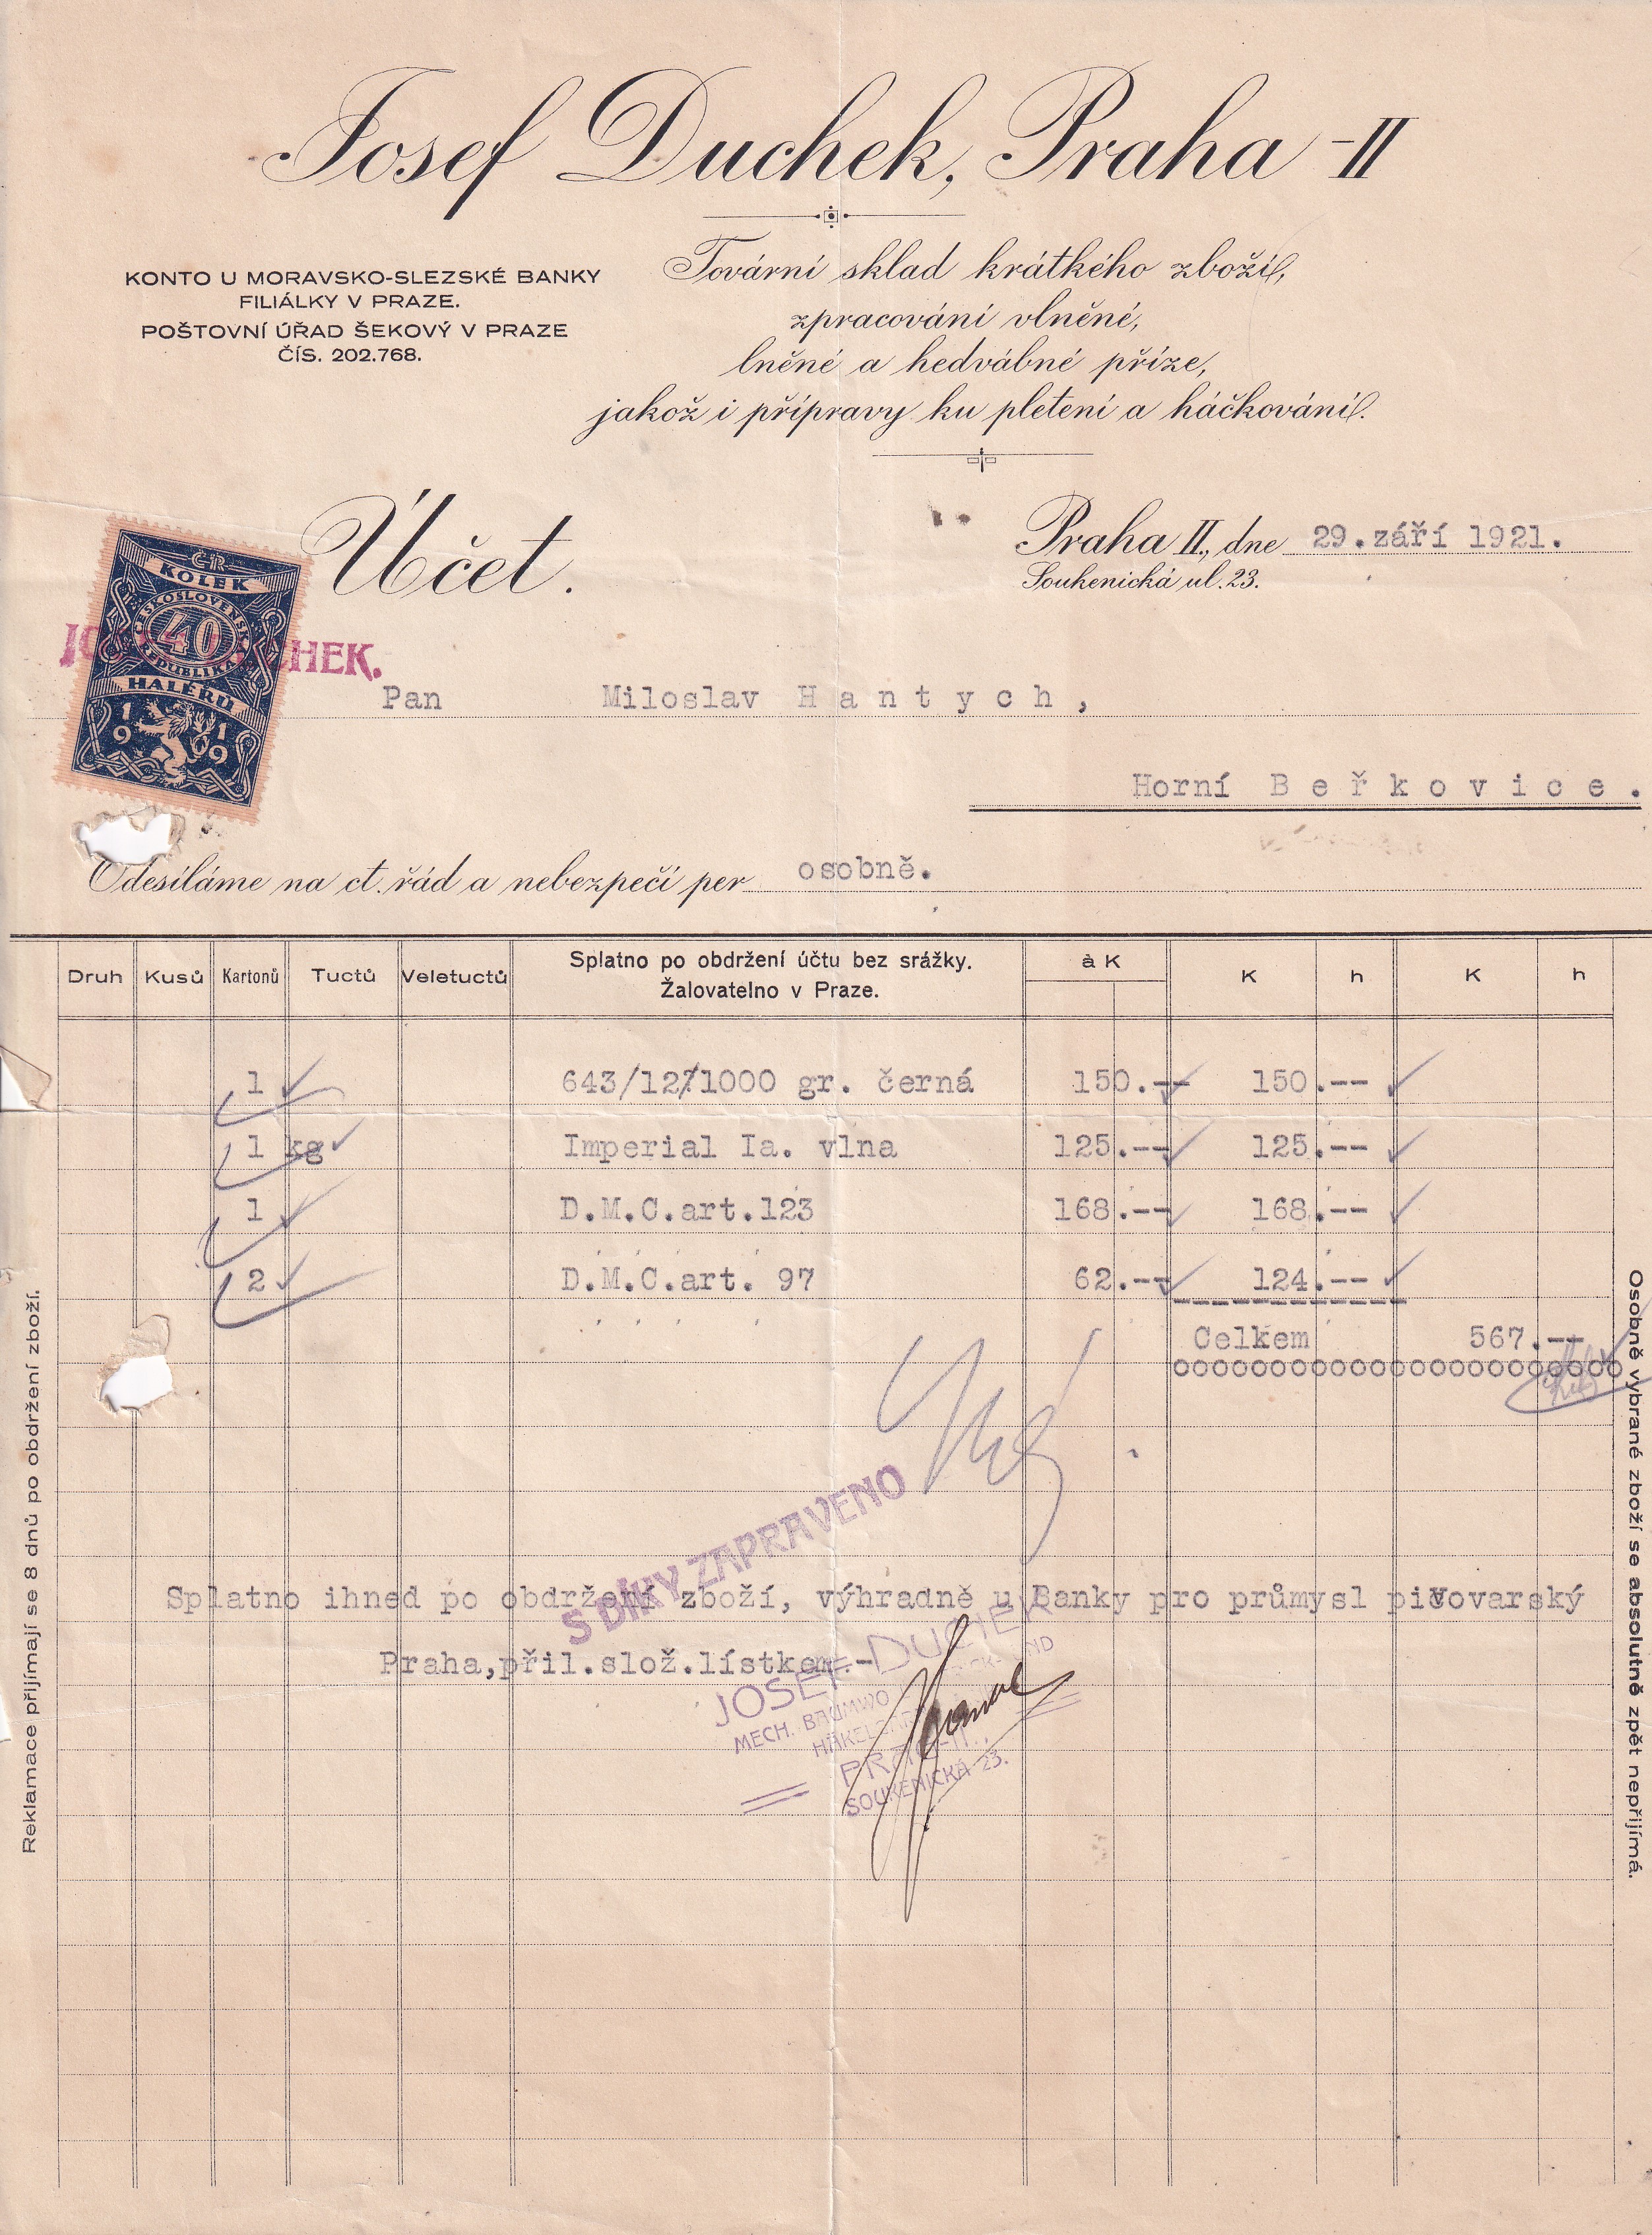 Josef Duchek, Praha-II
KONTO U MORAVSKO-SLEZSKÉ BANKY
FILIÁLKY V PRAZE.
POŠTOVNÍ ÚŘAD ŠEKOVÝ V PRAZE
ČÍS. 202.768.
Tovární sklad krátkého zboží,
zpracování vlněné,
lněné a hedvábné příze,
jakož i přípravy ku pletení a háčkování.
Účet.
Praha II., dne 29.září 1921.
Soukenická ul. 23.
ČR
KOLEK
ČESKOSLOVENSKÁ
40
REPUBLIKA
HALÉŘŮ
1919
HEK.
Pan Miloslav Hantych,
Horní Beřkovice.
Odesíláme na ct. řád a nebezpečí per osobně.
Druh Kusů Kartonů Tuctů Veletuctů Splatno po obdržení účtu bez srážky. à K K h K h
Žalovatelno v Praze.
1 643/12/1000 gr. černá 150.-- 150.--
1 kg Imperial Ia. vlna 125.-- 125.--
1 D.M.C.art.123 168.-- 168.--
2 D.M.C.art. 97 62.-- 124.--
Celkem 567.--
S DÍKY ZAPRAVENO
Splatno ihned po obdržení zboží, výhradně u Banky pro průmysl pivovarský
Praha,přil.slož.lístkem.-
JOSEF DUCHEK
MECH. BAUMWO
PRAG-II.,
SOUKENICKÁ 23.
Reklamace přijímají se 8 dnů po obdržení zboží.
Osobně vybrané zboží se absolutně zpět nepřijímá.